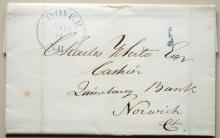 DOVER
NOV
5
Charles White Esq
Cashier
Quinebaug Bank
Norwich
Ct.